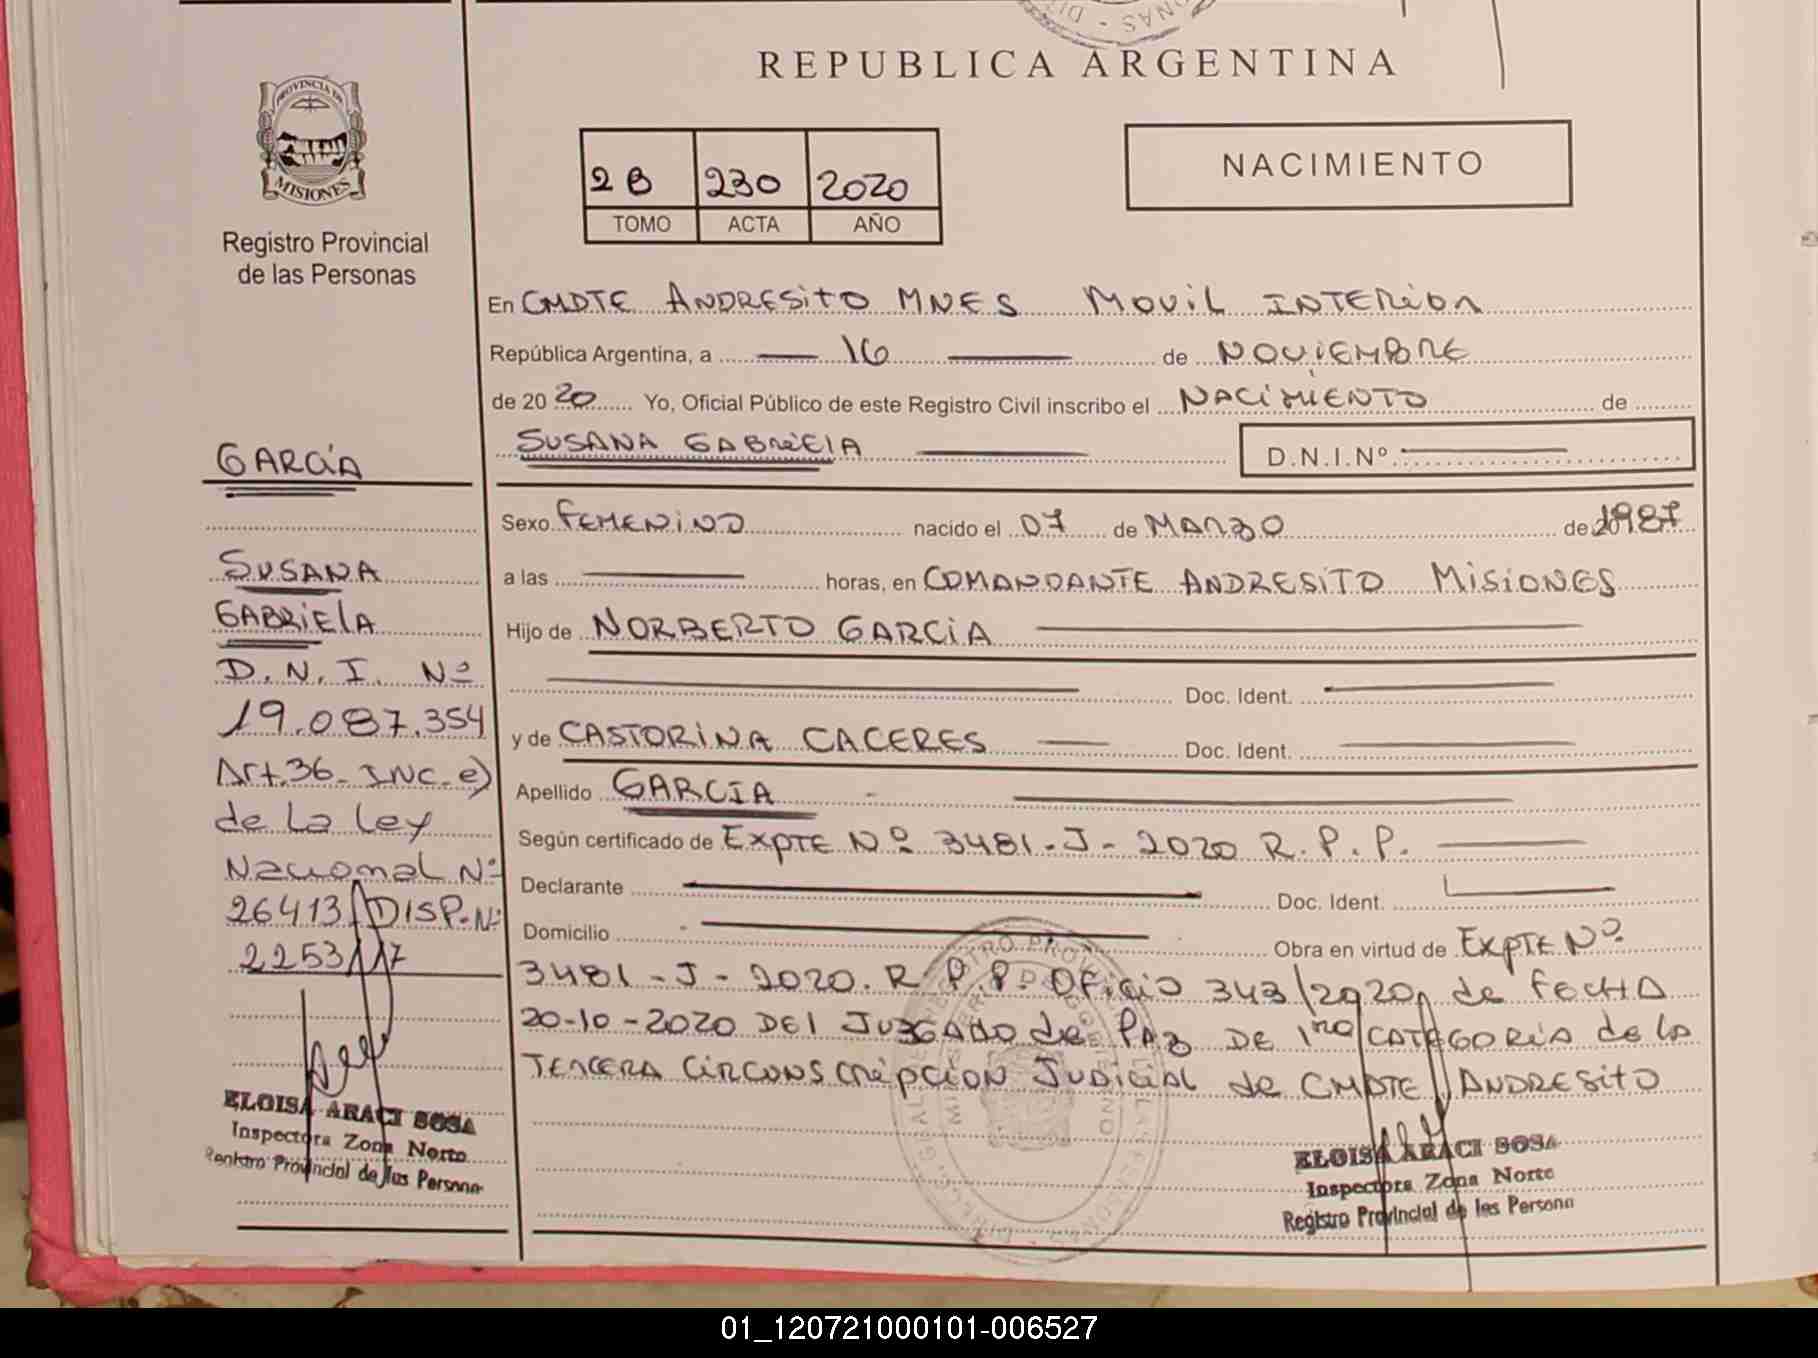 REPUBLICA ARGENTINA
PROVINCIA DE
MISIONES
Registro Provincial
de las Personas
2B 230 2020
TOMO ACTA AÑO
NACIMIENTO
En CMDTE ANDRESITO MNES MOVIL INTERIOR
República Argentina, a 16 de NOVIEMBRE
de 2020 Yo, Oficial Público de este Registro Civil inscribo el NACIMIENTO de
SUSANA GABRIELA D.N.I.Nº
Sexo FEMENINO nacido el 07 de MARZO de 1987
a las horas, en COMANDANTE ANDRESITO MISIONES
Hijo de NORBERTO GARCIA
Doc. Ident.
y de CASTORINA CACERES Doc. Ident.
Apellido GARCIA
Según certificado de EXPTE Nº 3481-J-2020 R.P.P.
Declarante Doc. Ident.
Domicilio Obra en virtud de EXPTE Nº
3481-J-2020. R.P.P. OFICIO 343/2020, de FECHA
20-10-2020 DEL JUZGADO de PAZ DE 1ra CATEGORIA de LA
TERCERA CIRCUNSCRIPCION JUDICIAL de CMDTE ANDRESITO
ELOISA ARACI SOSA
Inspectora Zona Norte
Registro Provincial de las Persona
GARCIA
SUSANA
GABRIELA
D.N.I. Nº
19.087.354
Art.36- INC-e)
de La Ley
Nacional Nº
26413/DISP.Nº
2253/17
ELOISA ARACI SOSA
Inspectora Zona Norte
Registro Provincial de las Persona
01_120721000101-006527